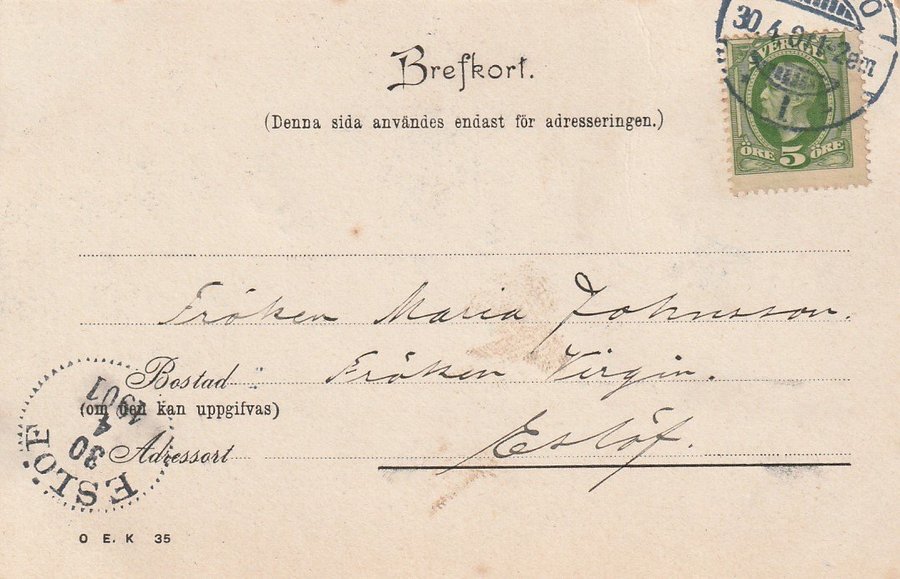 Brefkort.
(Denna sida användes endast för adresseringen.)
SVERIGE
ÖRE 5 ÖRE
30.4.01 1-2 em
1.
Fröken Maria Johnsson.
Bostad Fröken Virgin.
(om den kan uppgifvas)
Adressort Eslöf.
ESLÖF
30
4
1901
O E. K 35